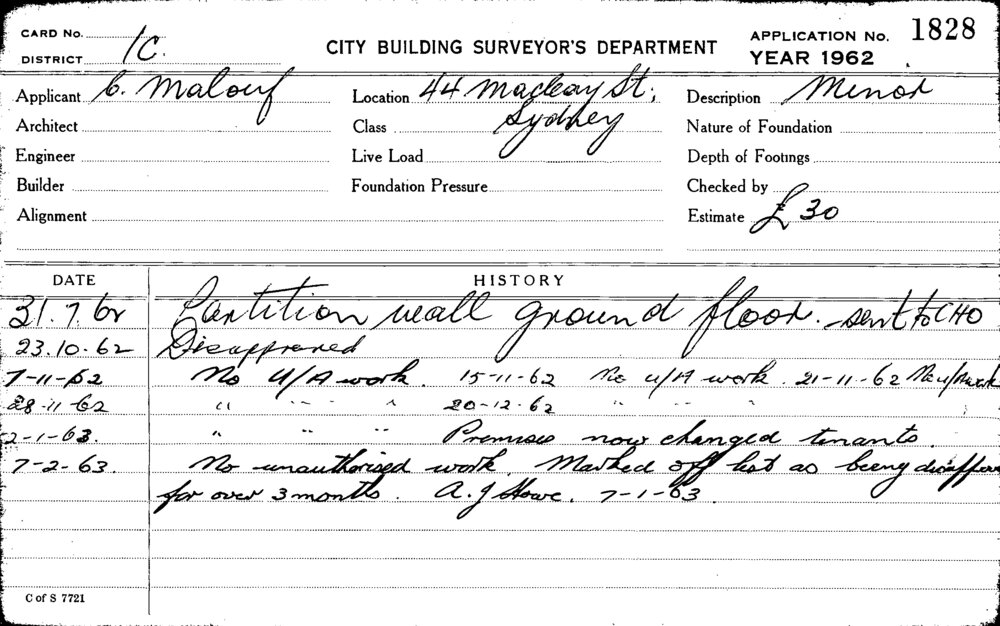 CARD No.
DISTRICT 1C.
CITY BUILDING SURVEYOR'S DEPARTMENT
APPLICATION No. 1828
YEAR 1962
Applicant C. Malouf
Location 44 Macleay St,
Sydney
Description Minor
Architect
Class
Nature of Foundation
Engineer
Live Load
Depth of Footings
Builder
Foundation Pressure
Checked by
Alignment
Estimate £ 30
DATE HISTORY
31.7.62 Partition wall ground floor. - sent to CHO
23.10.62 Disapproved
7-11-62 No U/A work. 15-11-62 No U/A work. 21-11-62 No U/A work
28-11-62 " " " 20-12-62 " " "
2-1-63. " " " Premises now changed tenants.
7-2-63. No unauthorised work. Marked off list as being disapprov
for over 3 months. A. J Howe. 7-1-63.
C of S 7721